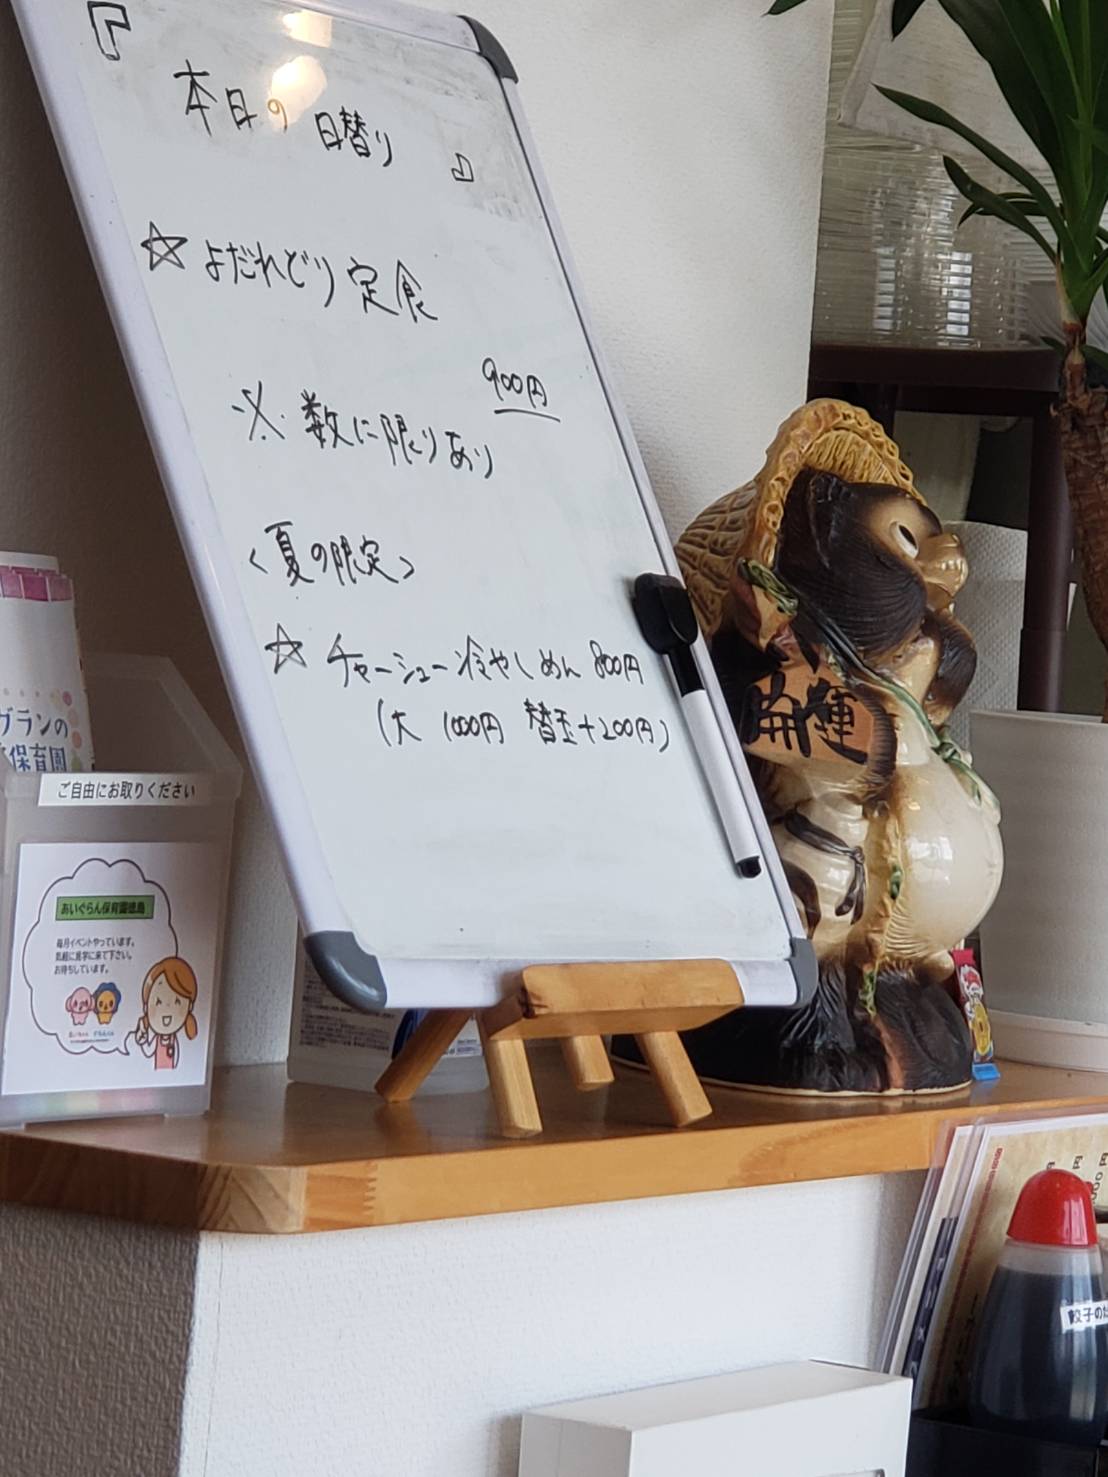 『本日の日替り』
☆よだれどり定食
900円
※数に限りあり
<夏の限定>
☆チャーシュー冷やしめん 800円
(大 1000円 替玉+200円)
開運
グランの
保育園
ご自由にお取りください
あいぐらん保育園徳島
毎月イベントやっています。
気軽に見学に来て下さい。
お待ちしています。
餃子のた